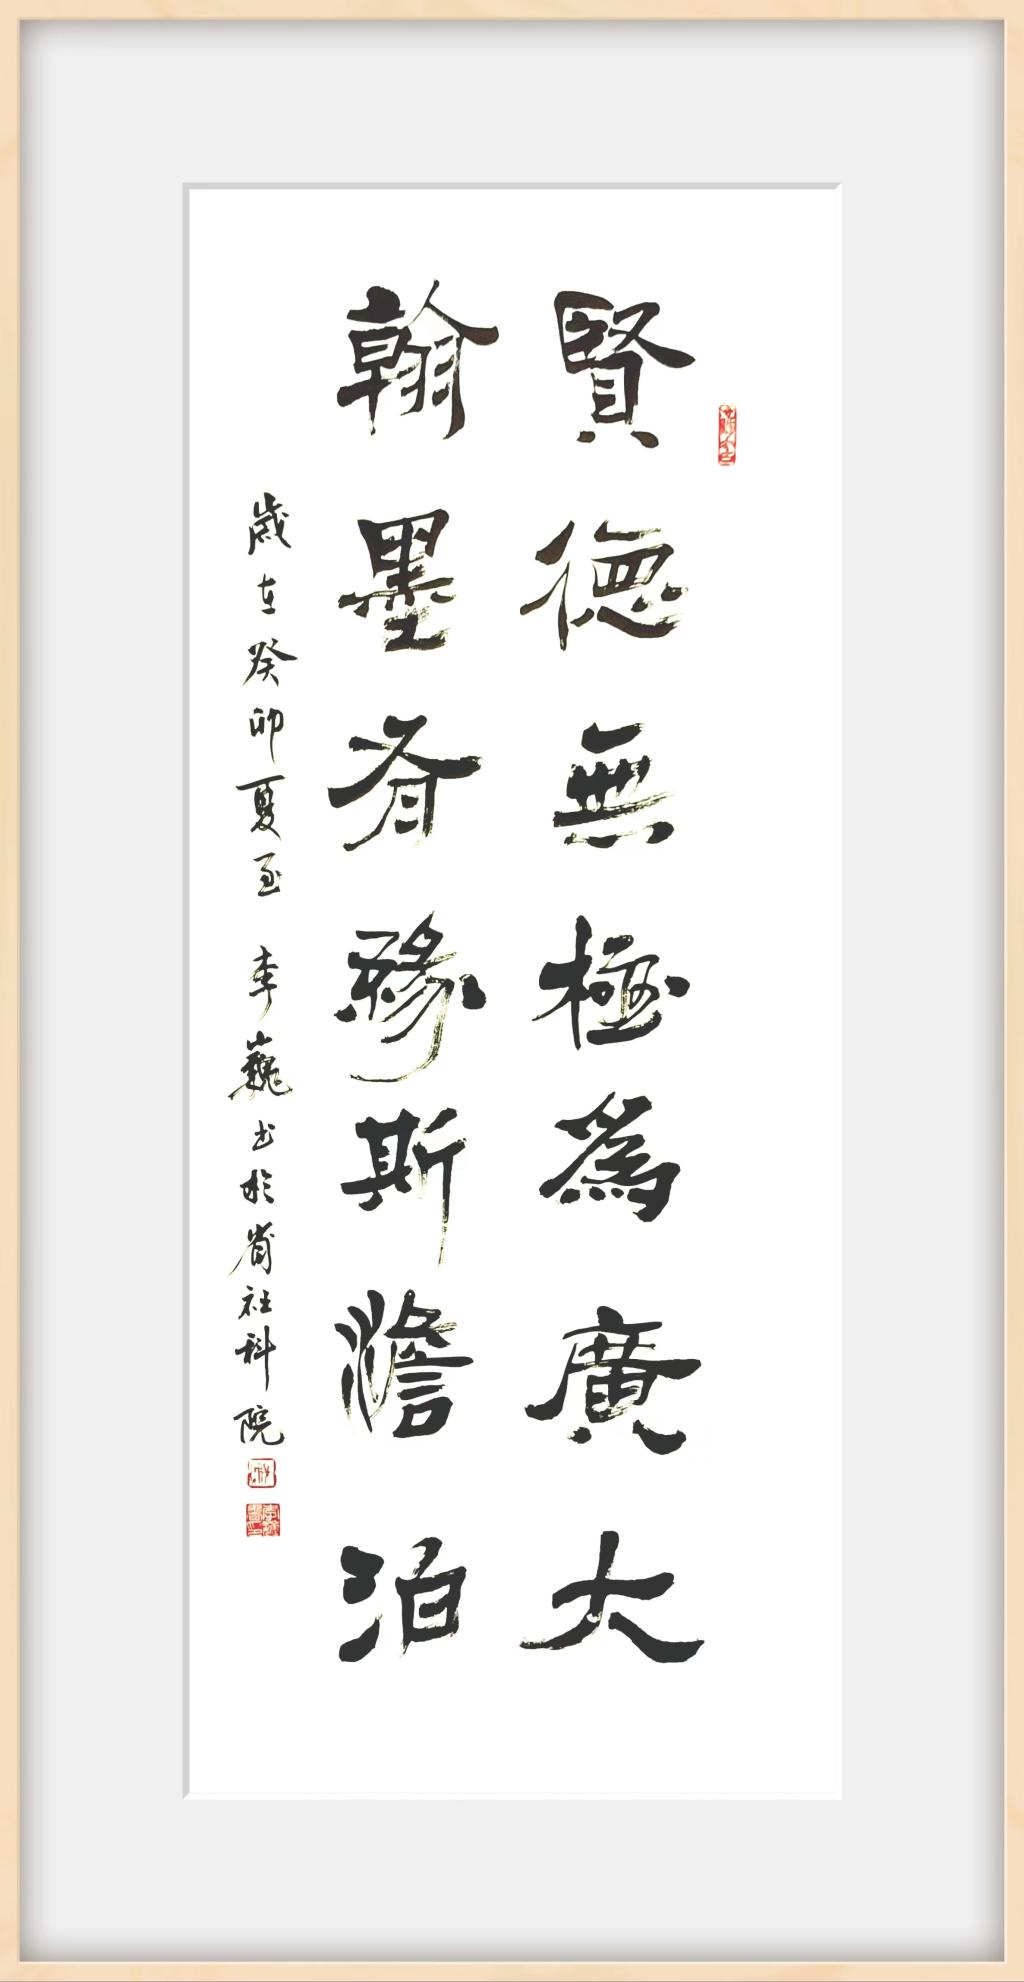 賢德無極為廣大
翰墨有緣斯澹泊
歲在癸卯夏至 李巍书於省社科院